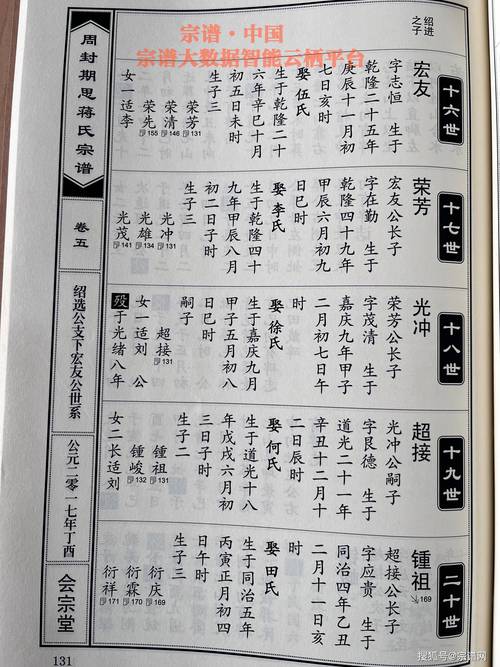 宗谱·中国
宗谱大数据智能云栖平台
绍进
之子
十六世
宏友
字志恒 生于
乾隆二十五年
庚辰十一月初
七日亥时
娶伍氏
生于乾隆二十
六年辛巳十月
初五日未时
生子三
荣芳 131
荣清 146
荣先 155
女一适李
十七世
荣芳
宏友公长子
字在勤 生于
乾隆四十九年
甲辰六月初九
日巳时
娶李氏
生于乾隆四十
九年甲辰八月
初二日子时
生子三
光冲 131
光雄 134
光茂 141
十八世
光冲
荣芳公长子
字茂清 生于
嘉庆九年甲子
二月初七日午
时
娶徐氏
生于嘉庆九月
甲子五月初八
日巳时
嗣子
超接 131
女一适刘 公
殁于光绪八年
十九世
超接
光冲公嗣子
字艮德 生于
道光二十一年
辛丑十二月十
二日辰时
娶何氏
生于道光十八
年戊戌六月初
三日子时
生子二
锺祖 131
锺峻 132
女二长适刘
二十世
锺祖 169
超接公长子
字应贵 生于
同治四年乙丑
二月十一日亥
时
娶田氏
生于同治五年
丙寅正月初四
日午时
生子三
衍庆 169
衍霖 170
衍祥 171
周封期思蒋氏宗谱
卷五
绍选公支下宏友公世系
公元二零一七年丁酉
会宗堂
131
搜狐号@宗谱网